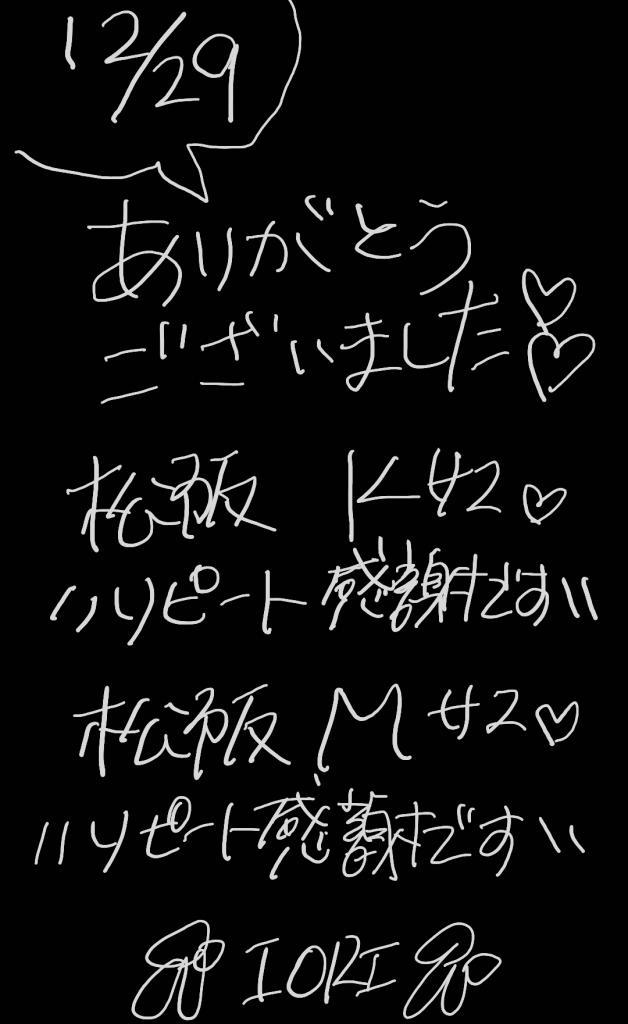 12/29
ありがとう
ございました♡♡
松阪 Kサマ♡
〃リピート感謝です〃
松阪 Mサマ♡
〃リピート感謝です〃
IORI